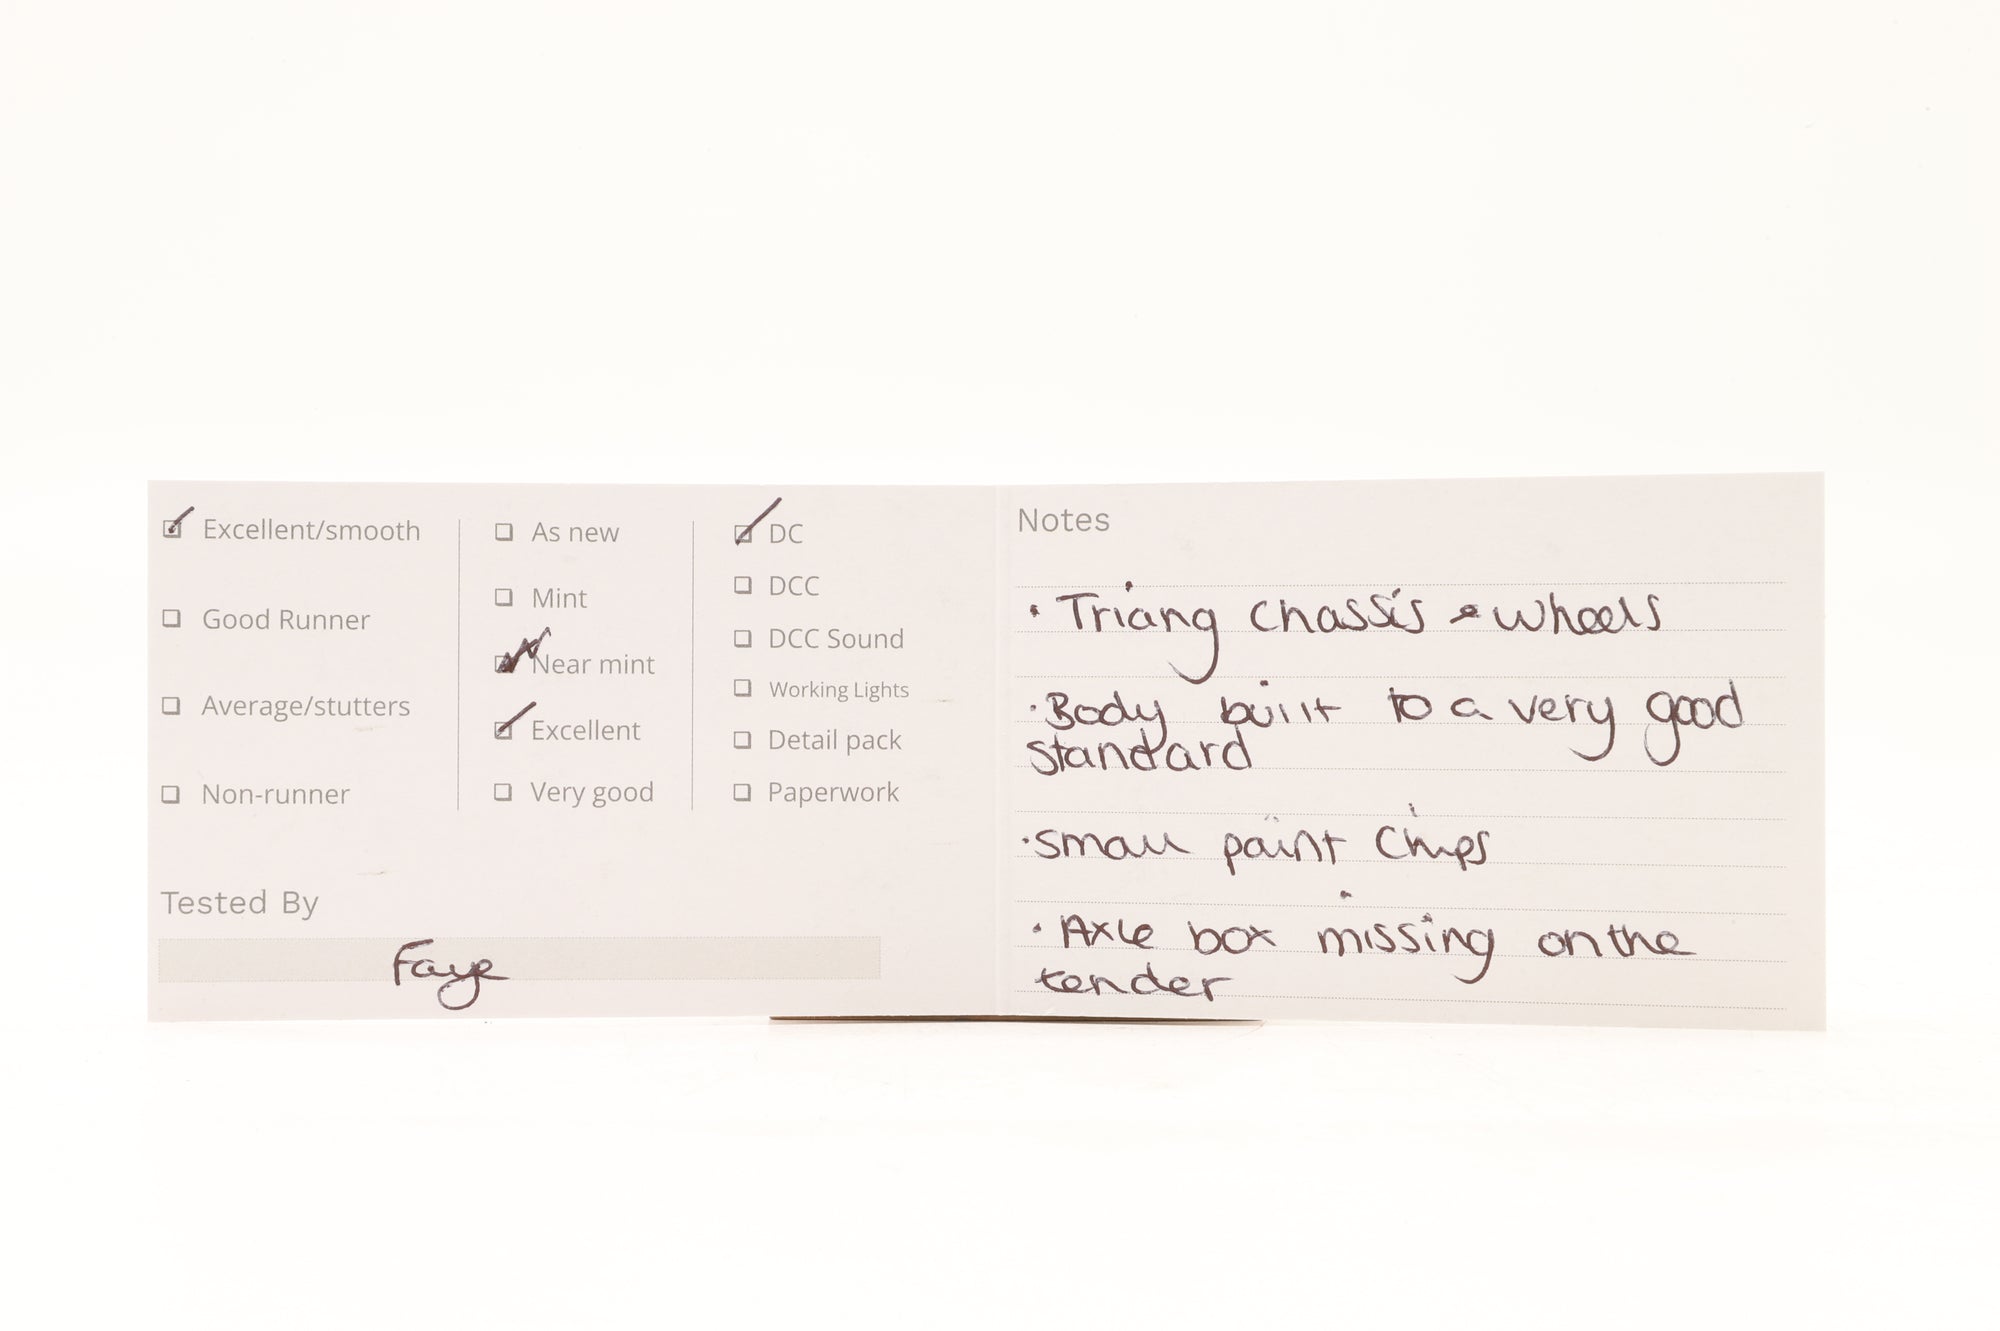 Excellent/smooth
Good Runner
Average/stutters
Non-runner
As new
Mint
Near mint
Excellent
Very good
DC
DCC
DCC Sound
Working Lights
Detail pack
Paperwork
Tested By
Faye
Notes
• Triang chassis & wheels
• Body built to a very good
standard
• small paint chips
• Axle box missing on the
tender